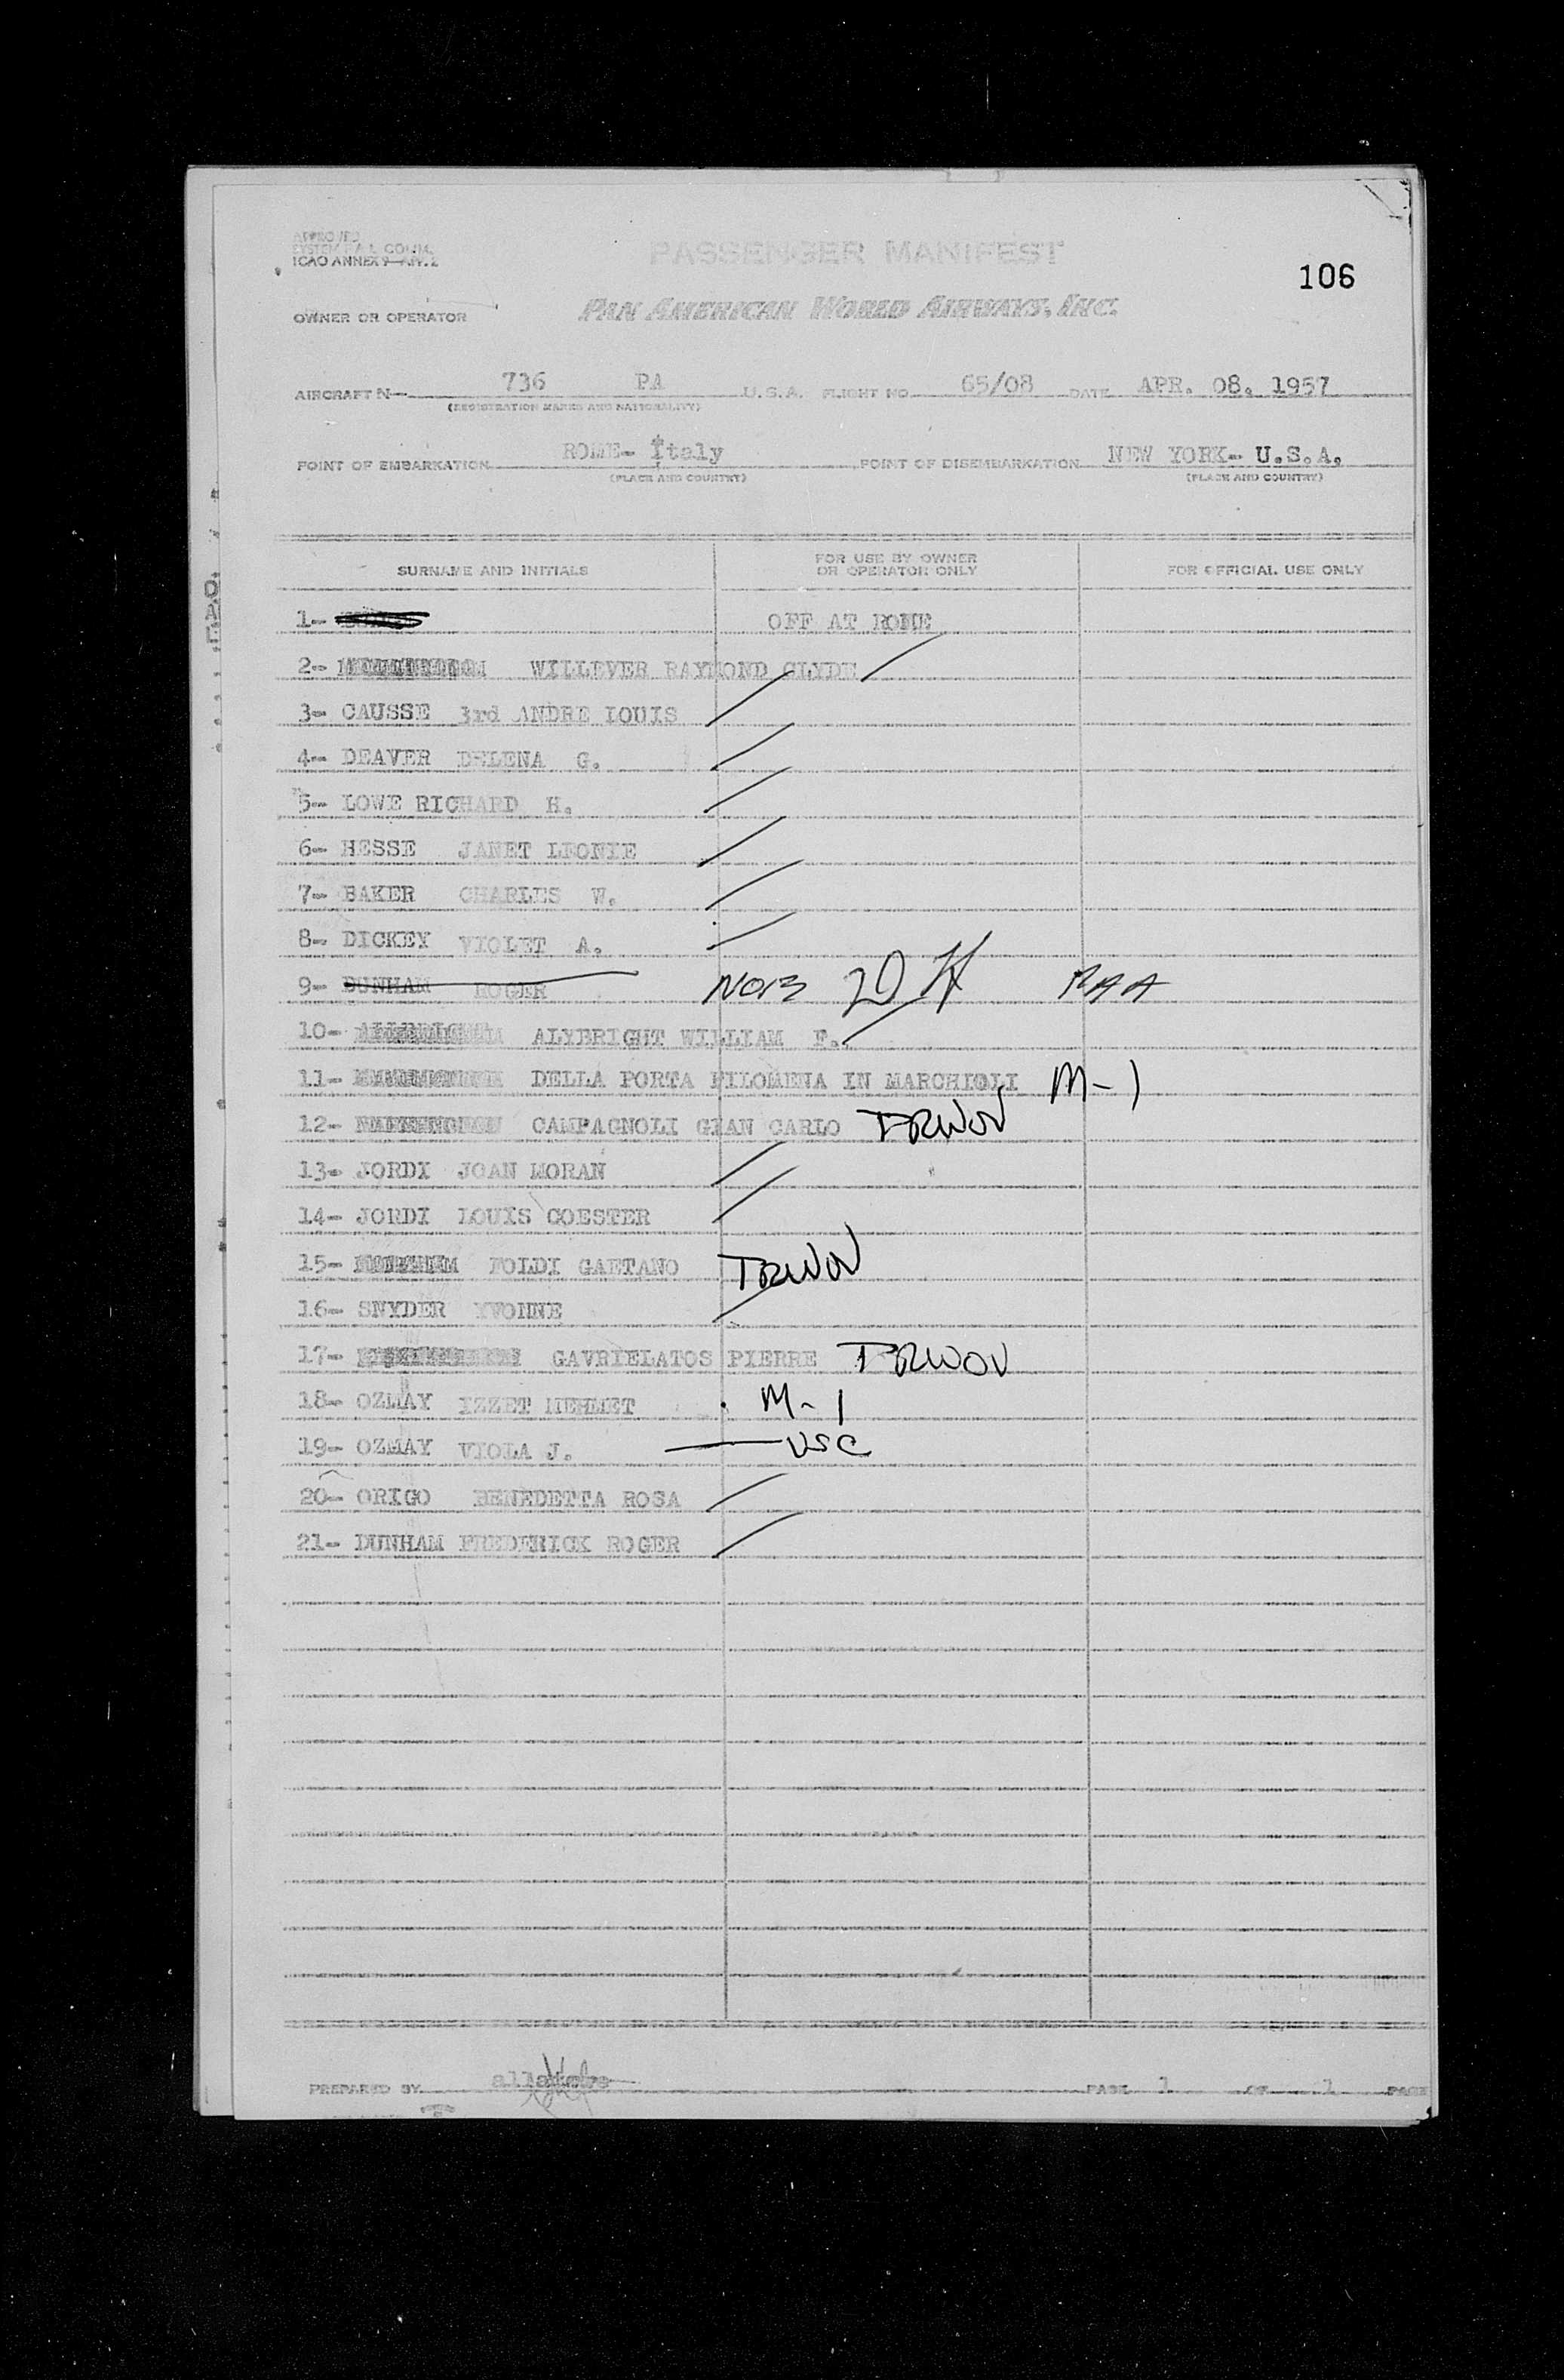 APPROVED
SYSTEM F.A.L. COMM.
ICAO ANNEX 9-APP. 2
PASSENGER MANIFEST
106
OWNER OR OPERATOR PAN AMERICAN WORLD AIRWAYS, INC.
AIRCRAFT N- 736 PA U.S.A. FLIGHT NO 65/08 DATE APR. 08. 1957
(REGISTRATION MARKS AND NATIONALITY)
POINT OF EMBARKATION ROME- Italy POINT OF DISEMBARKATION NEW YORK- U.S.A.
(PLACE AND COUNTRY) (PLACE AND COUNTRY)
SURNAME AND INITIALS FOR USE BY OWNER OR OPERATOR ONLY FOR OFFICIAL USE ONLY
1- OFF AT ROME
2- WILLEVER RAYMOND CLYDE
3- CAUSSE 3rd ANDRE LOUIS
4- DEAVER DELENA G.
5- LOWE RICHARD H.
6- HESSE JANET LEONIE
7- BAKER CHARLES W.
8- DICKEY VIOLET A.
9- DUNHAM ROGER NOB PAA
10- ALYBRIGHT WILLIAM F.
11- DELLA PORTA FILOMENA IN MARCHIOLI M-1
12- CAMPAGNOLI GIAN CARLO TRWOV
13- JORDI JOAN MORAN
14- JORDI LOUIS COESTER
15- FOLDI GAETANO TRWOV
16- SNYDER YVONNE
17- GAVRIELATOS PIERRE TRWOV
18- OZMAY IZZET MEHMET M-1
19- OZMAY VIOLA J. USC
20- ORIGO BENEDETTA ROSA
21- DUNHAM FREDERICK ROGER
PREPARED BY PAGE 1 OF 1 PAGE